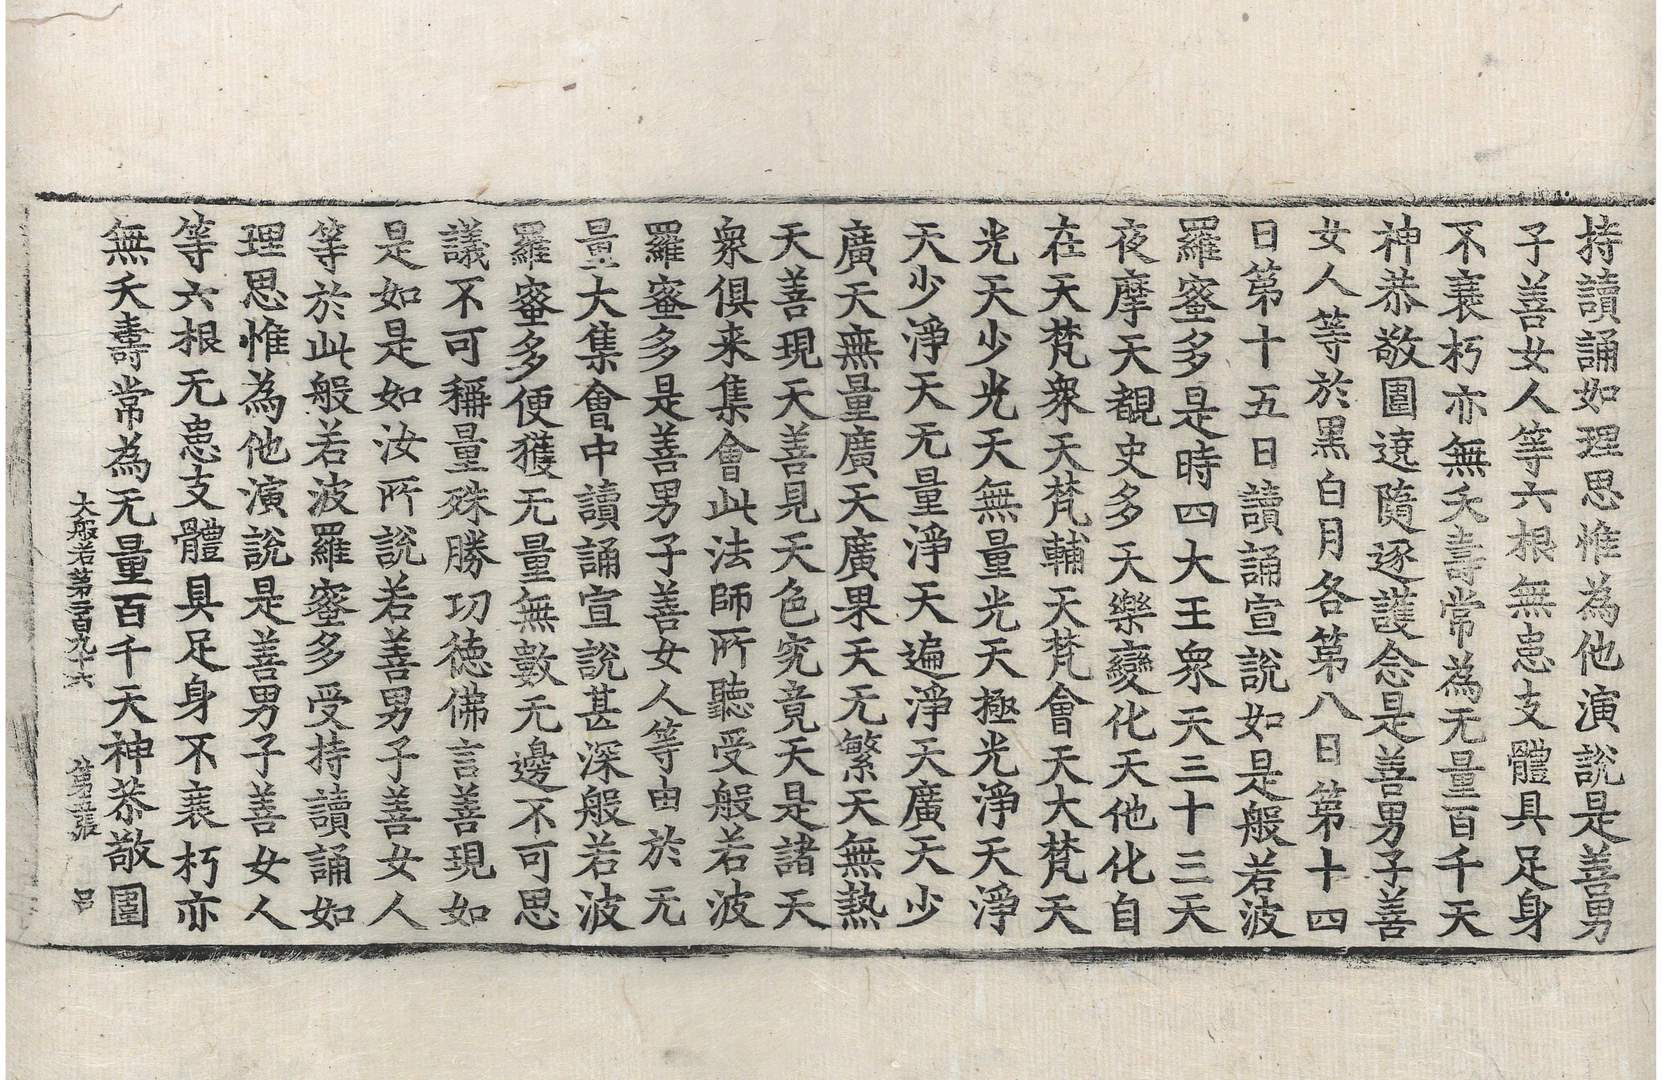 持讀誦如理思惟為他演說是善男
子善女人等六根無患支體具足身
不衰朽亦無夭壽常為无量百千天
神恭敬圍遶隨逐護念是善男子善
女人等於黑白月各第八日第十四
日第十五日讀誦宣說如是般若波
羅蜜多是時四大王眾天三十三天
夜摩天覩史多天樂變化天他化自
在天梵眾天梵輔天梵會天大梵天
光天少光天無量光天極光淨天淨
天少淨天无量淨天遍淨天廣天少
廣天無量廣天廣果天无繁天無熱
天善現天善見天色究竟天是諸天
眾俱来集會此法師所聽受般若波
羅蜜多是善男子善女人等由於无
量大集會中讀誦宣說甚深般若波
羅蜜多便獲无量無數无邊不可思
議不可稱量殊勝功徳佛言善現如
是如是如汝所說若善男子善女人
等於此般若波羅蜜多受持讀誦如
理思惟為他演說是善男子善女人
等六根无患支體具足身不衰朽亦
無夭壽常為无量百千天神恭敬圍
大般若第二百九十六 第五張 呂